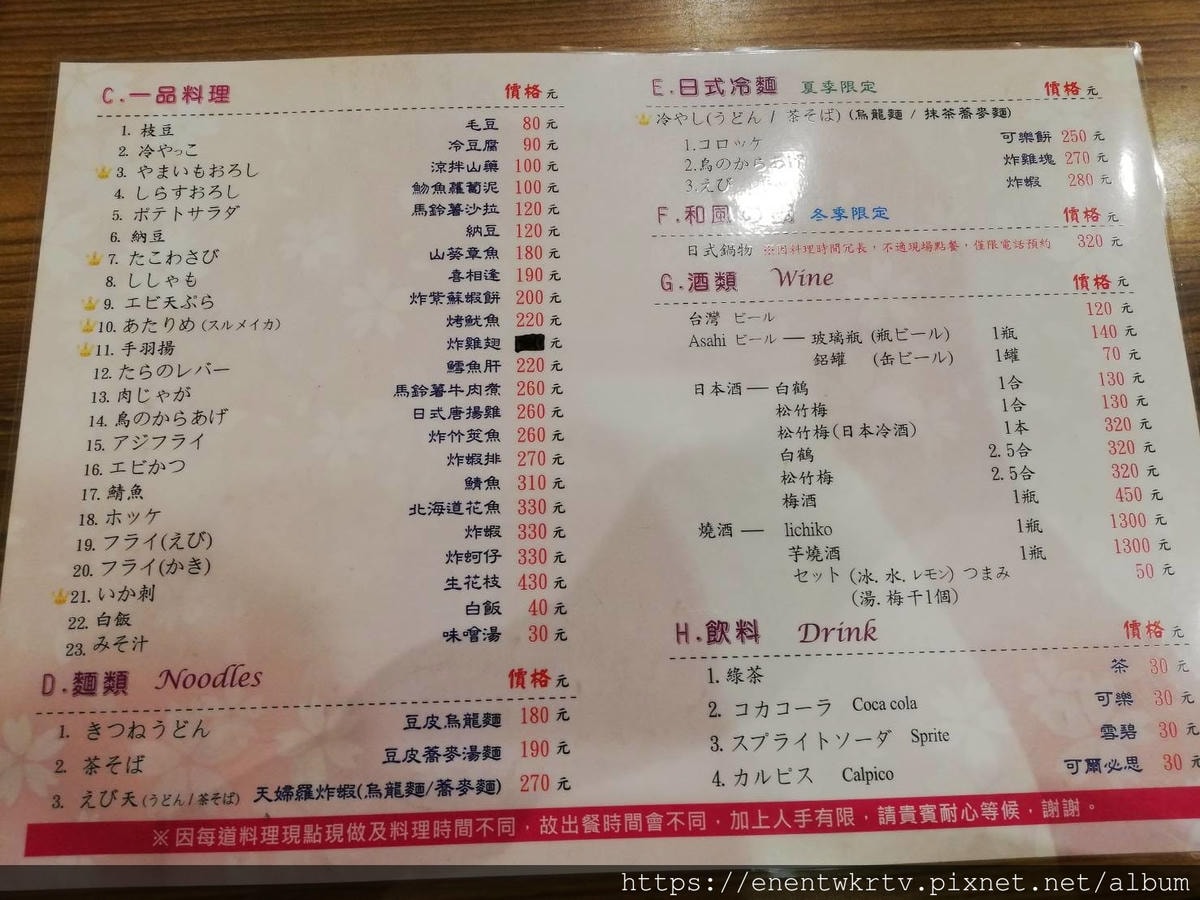 C.一品料理 價格 元
1. 枝豆 毛豆 80 元
2. 冷やっこ 冷豆腐 90 元
3. やまいもおろし 涼拌山藥 100 元
4. しらすおろし 魩魚蘿蔔泥 100 元
5. ポテトサラダ 馬鈴薯沙拉 120 元
6. 納豆 納豆 120 元
7. たこわさび 山葵章魚 180 元
8. ししゃも 喜相逢 190 元
9. エビ天ぷら 炸紫蘇蝦餅 200 元
10. あたりめ (スルメイカ) 烤魷魚 220 元
11. 手羽揚 炸雞翅 元
12. たらのレバー 鱈魚肝 220 元
13. 肉じゃが 馬鈴薯牛肉煮 260 元
14. 鳥のからあげ 日式唐揚雞 260 元
15. アジフライ 炸竹筴魚 260 元
16. エビかつ 炸蝦排 270 元
17. 鯖魚 鯖魚 310 元
18. ホッケ 北海道花魚 330 元
19. フライ(えび) 炸蝦 330 元
20. フライ(かき) 炸蚵仔 330 元
21. いか刺 生花枝 430 元
22. 白飯 白飯 40 元
23. みそ汁 味噌湯 30 元
D.麵類 Noodles 價格 元
1. きつねうどん 豆皮烏龍麵 180 元
2. 茶そば 豆皮蕎麥湯麵 190 元
3. えび天(うどん/茶そば) 天婦羅炸蝦(烏龍麵/蕎麥麵) 270 元
E.日式冷麵 夏季限定 價格 元
冷やし(うどん / 茶そば) (烏龍麵 / 抹茶蕎麥麵)
1.コロッケ 可樂餅 250 元
2.鳥のからあ 炸雞塊 270 元
3.えび 炸蝦 280 元
F.和風 冬季限定 價格 元
日式鍋物 ※因料理時間冗長，不適現場點餐，僅限電話預約 320 元
G.酒類 Wine 價格 元
台灣 ビール 120 元
Asahi ビール — 玻璃瓶 (瓶ビール) 1瓶 140 元
鋁罐 (缶ビール) 1罐 70 元
日本酒 — 白鶴 1合 130 元
松竹梅 1合 130 元
松竹梅(日本冷酒) 1本 320 元
白鶴 2.5合 320 元
松竹梅 2.5合 320 元
梅酒 1瓶 450 元
燒酒 — lichiko 1瓶 1300 元
芋燒酒 1瓶 1300 元
セット (冰.水.レモン) つまみ 50 元
(湯.梅干1個)
H.飲料 Drink 價格 元
1. 綠茶 茶 30 元
2. コカコーラ Coca cola 可樂 30 元
3. スプライトソーダ Sprite 雪碧 30 元
4. カルピス Calpico 可爾必思 30 元
※因每道料理現點現做及料理時間不同，故出餐時間會不同，加上人手有限，請貴賓耐心等候，謝謝。
https://enentwkrtv.pixnet.net/album